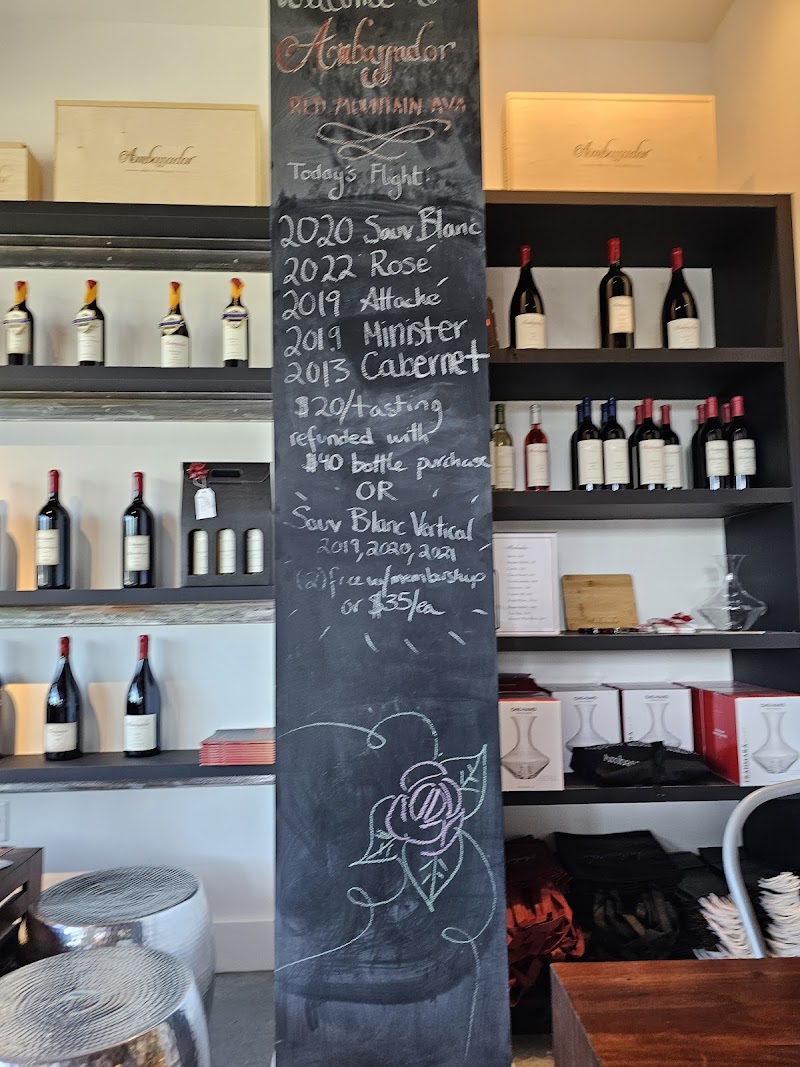 Welcome to
Ambassador
RED MOUNTAIN AVA
Today's Flight:
2020 Sauv Blanc
2022 Rosé
2019 Attaché
2019 Minister
2013 Cabernet
$20/tasting
refunded with
$40 bottle purchase
OR
Sauv Blanc Vertical
2019, 2020, 2021
(2) free w/membership
or $35/ea
Ambassador
Ambassador